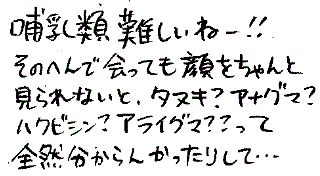 哺乳類難しいねー!!
そのへんで会っても顔をちゃんと
見られないと、タヌキ?アナグマ?
ハクビシン?アライグマ??って
全然分からんかったりして…